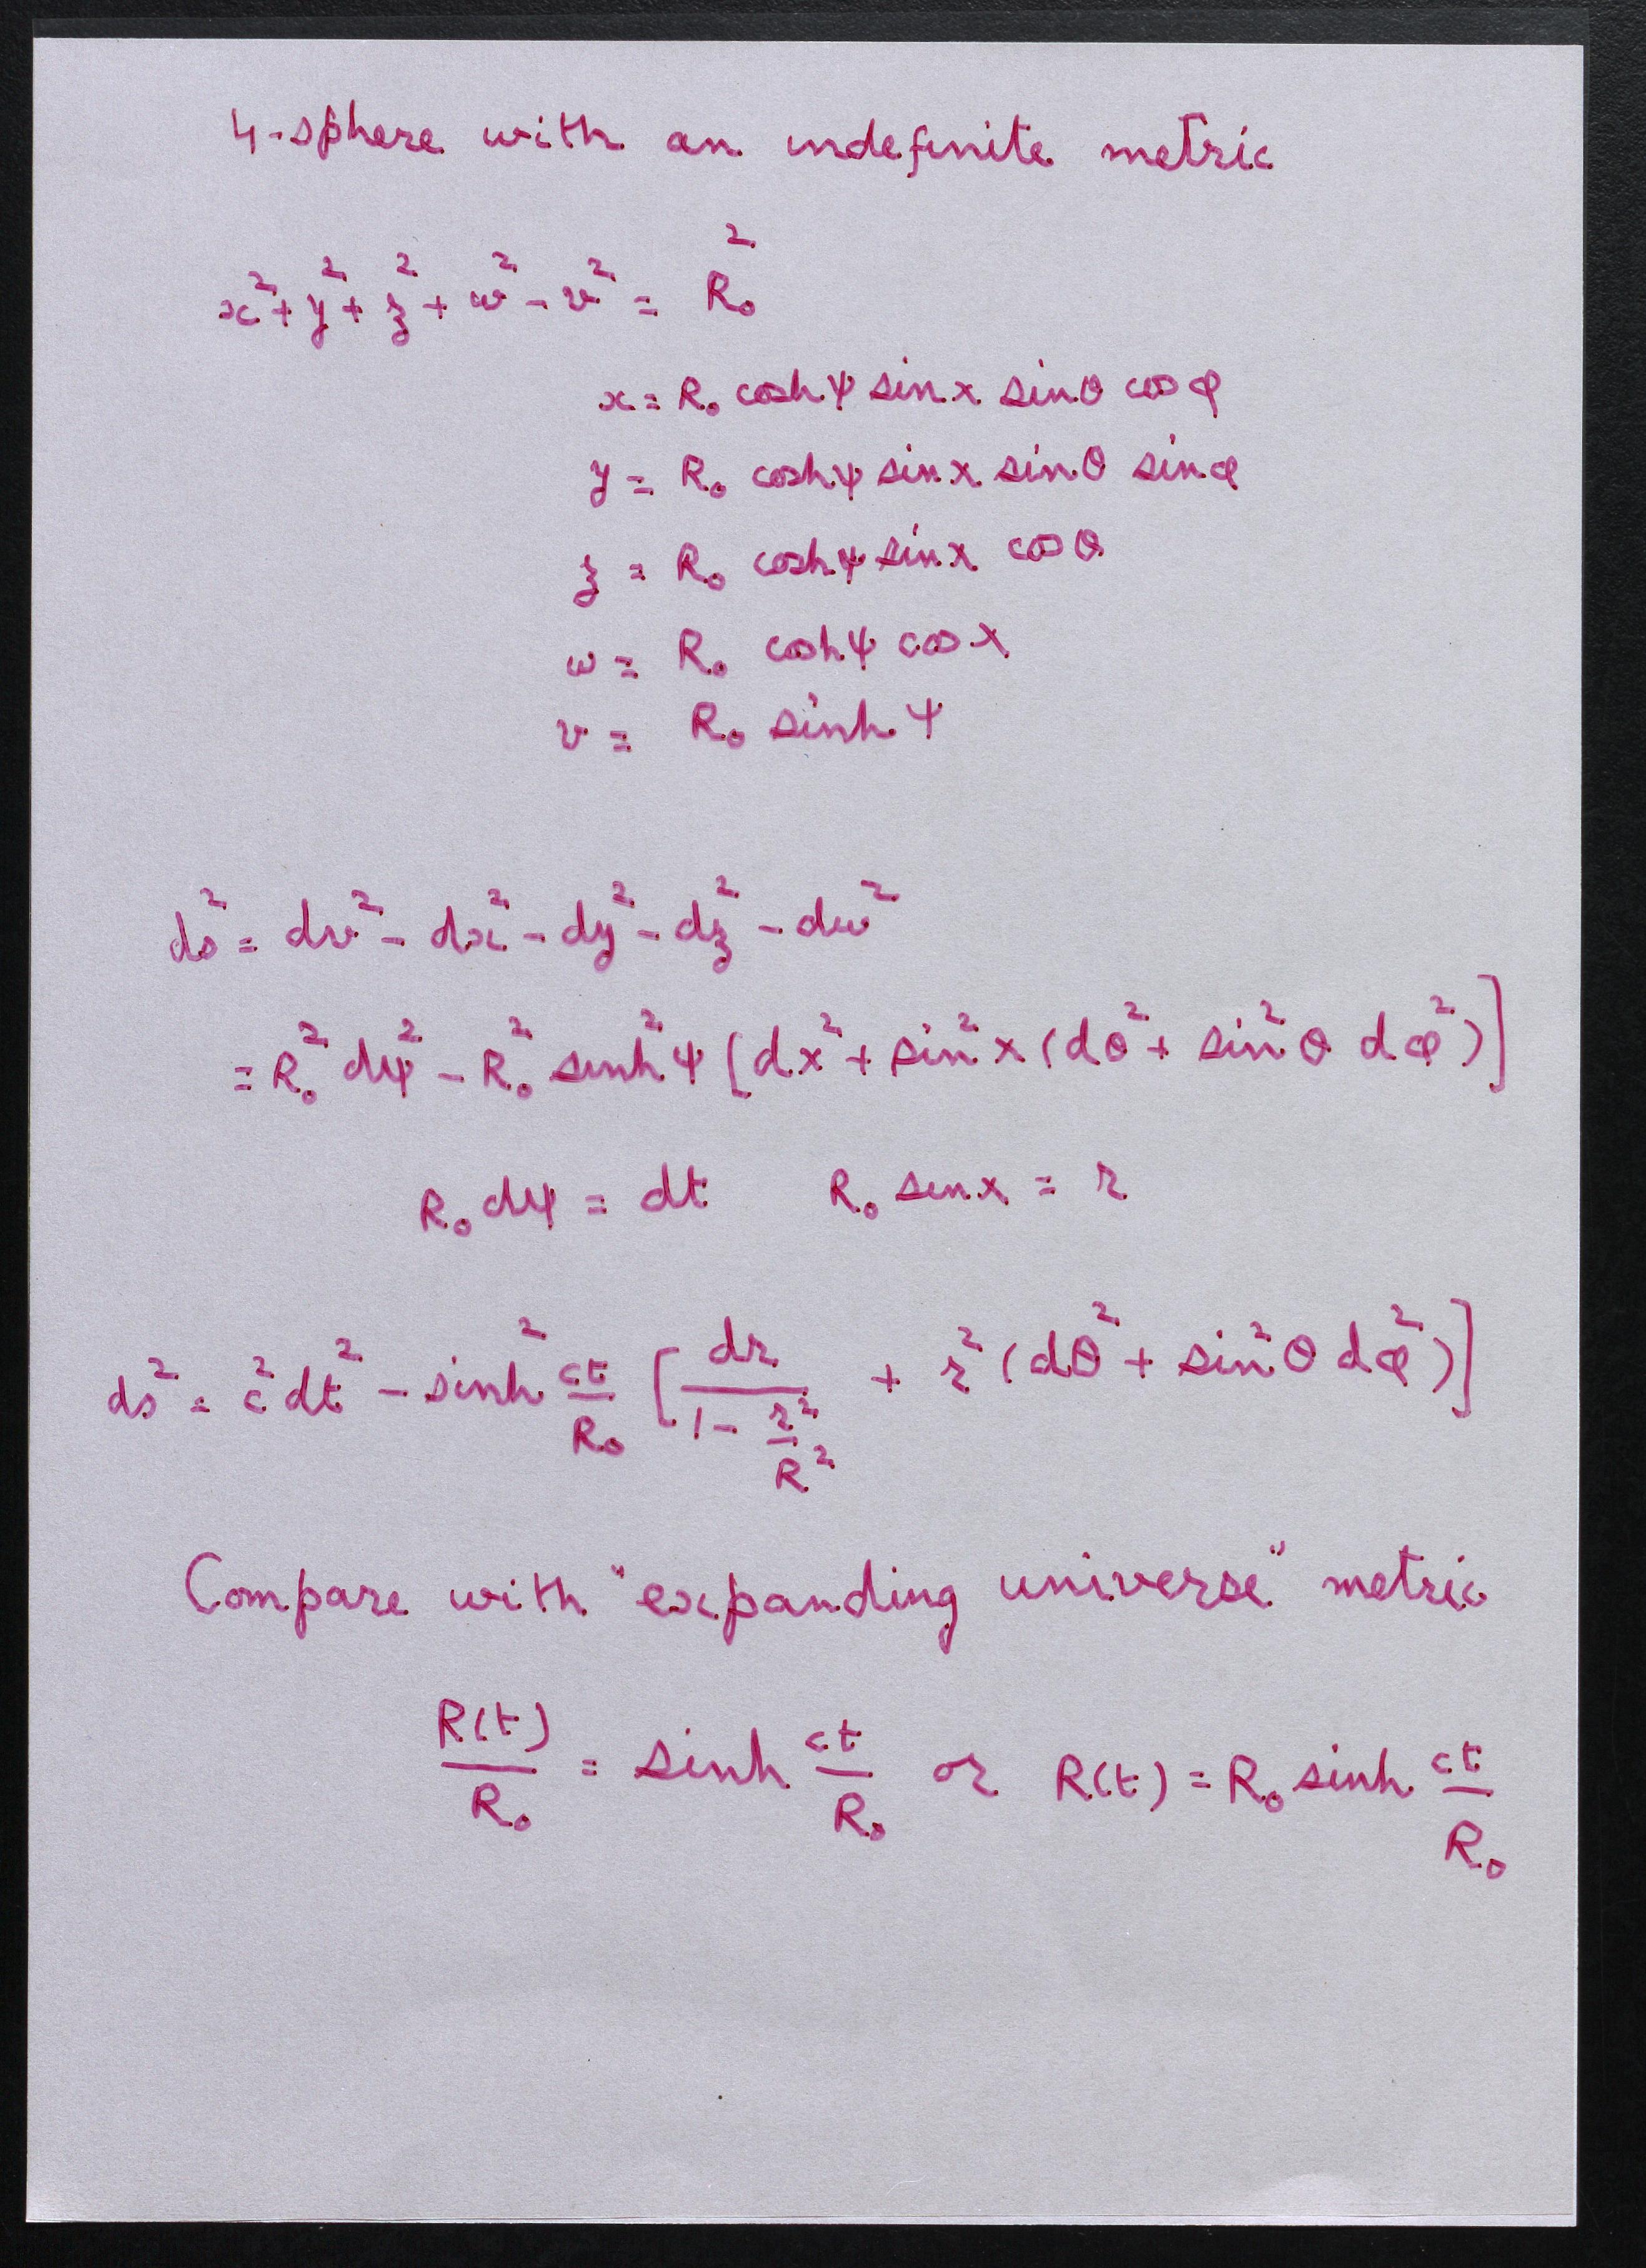 4-sphere with an indefinite metric
x² + y² + z² + w² - v² = R₀²
x = R₀ coshψ sinχ sinθ cosφ
y = R₀ coshψ sinχ sinθ sinφ
z = R₀ coshψ sinχ cosθ
w = R₀ coshψ cosχ
v = R₀ sinhψ
ds² = dv² - dx² - dy² - dz² - dw²
= R₀² dψ² - R₀² sinh²ψ [dχ² + sin²χ (dθ² + sin²θ dφ²)]
R₀ dψ = dt R₀ sinχ = r
ds² = c²dt² - sinh² ct/R₀ [dr/(1 - r²/R²) + r² (dθ² + sin²θ dφ²)]
Compare with "expanding universe" metric
R(t)/R₀ = sinh ct/R₀ or R(t) = R₀ sinh ct/R₀